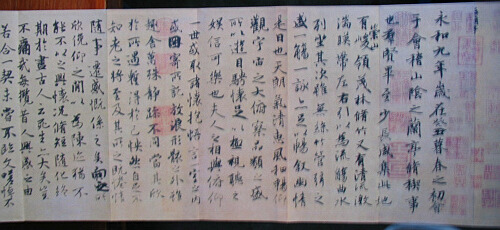 永和九年歲在癸丑暮春之初會
于會稽山陰之蘭亭脩稧事
也群賢畢至少長咸集此地
有崇山峻領茂林脩竹又有清流激
湍暎帶左右引以為流觴曲水
列坐其次雖無絲竹管弦之
盛一觴一詠亦足以暢敘幽情
是日也天朗氣清惠風和暢仰
觀宇宙之大俯察品類之盛
所以遊目騁懷足以極視聽之
娛信可樂也夫人之相與俯仰
一世或取諸懷抱悟言一室之內
或因寄所託放浪形骸之外雖
趣舍萬殊靜躁不同當其欣
於所遇蹔得於己怏然自足不
知老之將至及其所之既惓情
隨事遷感慨係之矣向之所
欣俛仰之閒以為陳迹猶不
能不以之興懷況脩短隨化終
期於盡古人云死生亦大矣豈
不痛哉每攬昔人興感之由
若合一契未嘗不臨文嗟悼不